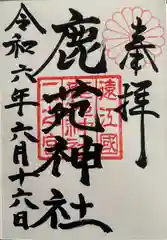 奉拝
鹿苑神社
令和六年六月十六日
遠江國